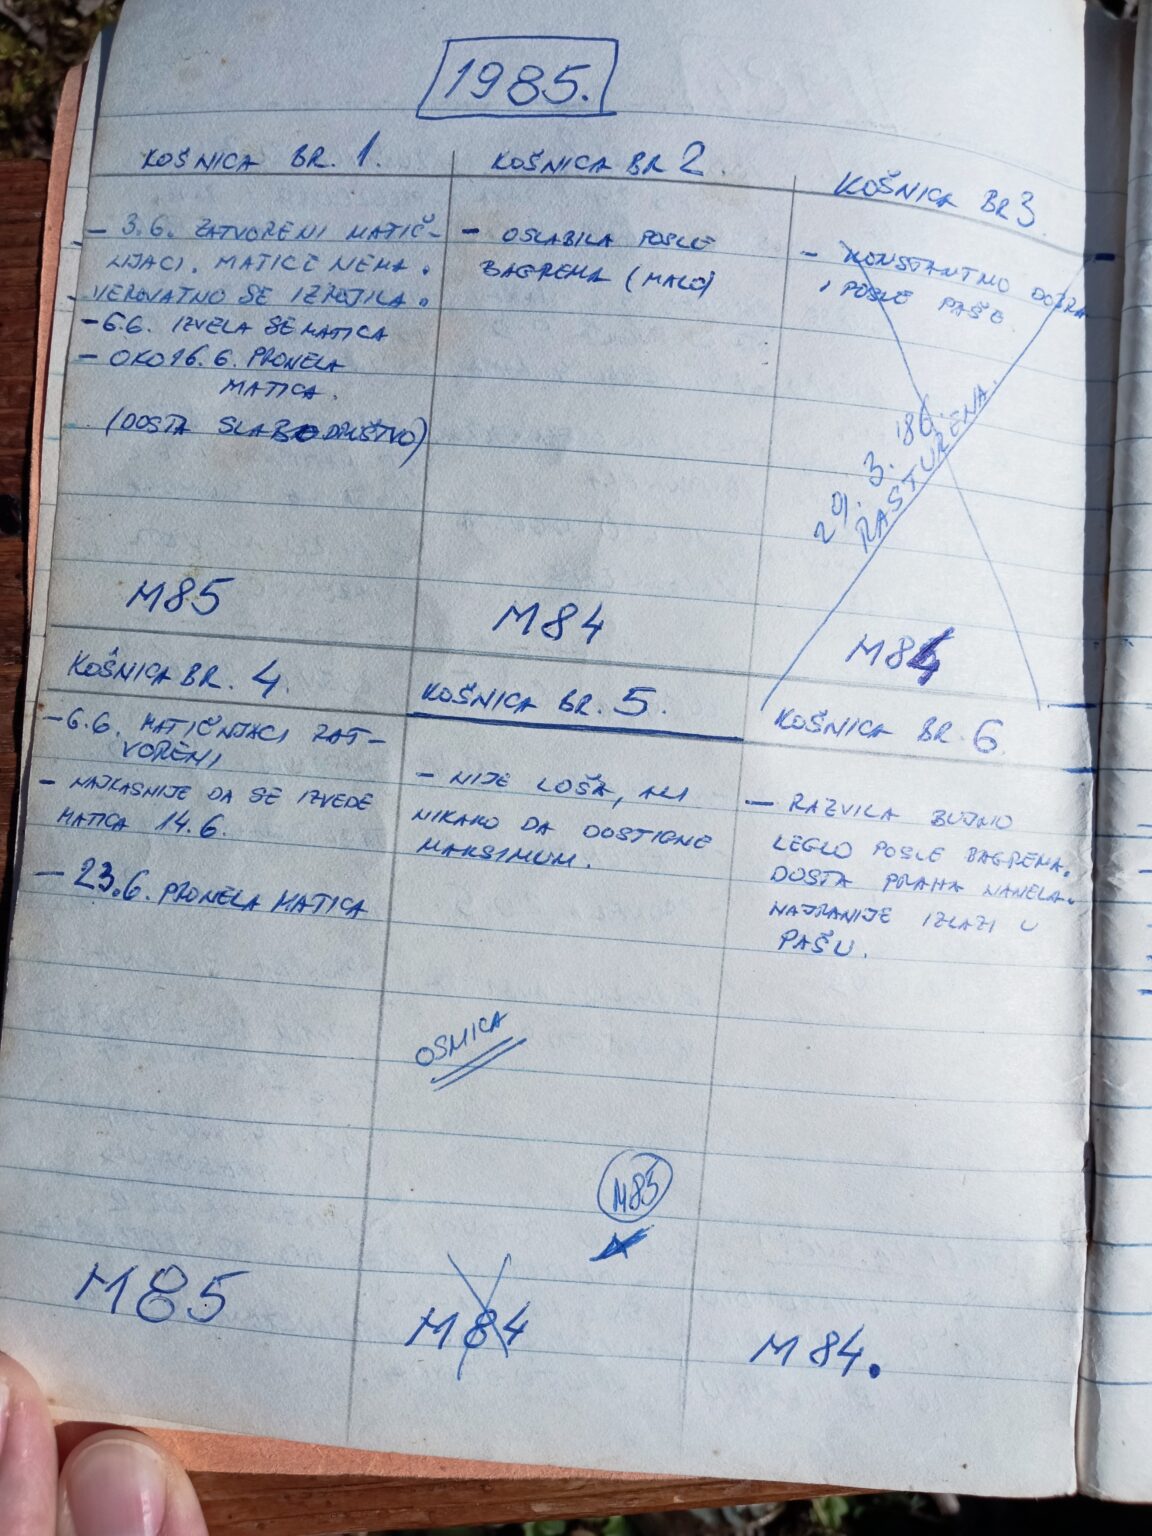 1985.
KOŠNICA BR. 1.
- 3.6. ZATVORENI MATIČ-
NJACI. MATICE NEMA.
VEROVATNO SE IZROJILA.
- 6.6. IZVELA SE MATICA
- OKO 16.6. PRONELA
MATICA.
(DOSTA SLABO DRUŠTVO)
M85
KOŠNICA BR 2.
- OSLABILA POSLE
BAGREMA (MALO)
M84
KOŠNICA BR 3
- KONSTANTNO DOBRA
I POSLE PAŠE
29. 3. '86.
RASTURENA.
M84
KOŠNICA BR. 4.
- 6.6. MATIČNJACI ZAT-
VORENI
- NAJKASNIJE DA SE IZVEDE
MATICA 14.6.
- 23.6. PRONELA MATICA
M85
KOŠNICA BR. 5.
- NIJE LOŠA, ALI
NIKAKO DA DOSTIGNE
MAKSIMUM.
OSMICA
M85
M84
KOŠNICA BR. 6
- RAZVILA BUJNO
LEGLO POSLE BAGREMA.
DOSTA PRAHA NANELA.
NAJRANIJE IZLAZI U
PAŠU.
M84.